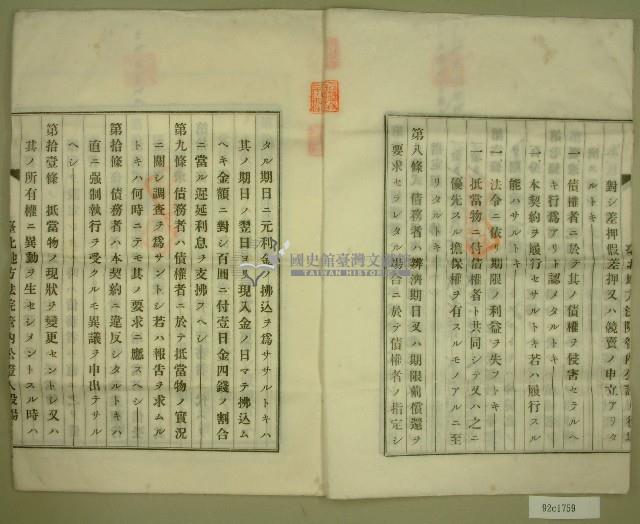 對シ差押假差押又ハ競賣ノ申立アリタ
ルトキ
一 債權者ニ於テ其ノ債權ヲ侵害セラルヘ
キ行爲アリト認メタルトキ
一 本契約ヲ履行セサルトキ若ハ履行スル
能ハサルトキ
一 法令ニ依リ期限ノ利益ヲ失フトキ
一 抵當物ニ付債權者ト共同シテ又ハ之ニ
優先スル擔保權ヲ有スルモノアルニ至
リタルトキ
第八條 債務者ハ辨濟期日又ハ期限前償還ヲ
要求セラレタル場合ニ於テ債權者ノ指定シ
タル期日ニ元利金ノ拂込ヲ爲ササルトキハ
其ノ期日ノ翌日ヨリ現入金ノ日マテ拂込ム
ヘキ金額ニ對シ百圓ニ付壹日金四錢ノ割合
ニ當ル遲延利息ヲ支拂スヘシ
第九條 債務者ハ債權者ニ於テ抵當物ノ實況
ニ關シ調査ヲ爲サントシ若ハ報告ヲ求ムル
トキハ何時ニテモ其ノ要求ニ應スヘシ
第拾條 債務者ハ本契約ニ違反シタルトキハ
直ニ强制執行ヲ受クルモ異議ヲ申出テサル
ヘシ
第拾壹條 抵當物ノ現狀ヲ變更セントシ又ハ
其ノ所有權ニ異動ヲ生セシメントスル時ハ
臺北地方法院管內公證人役場
國史館臺灣文獻館
TAIWAN HISTORICA
92c1759